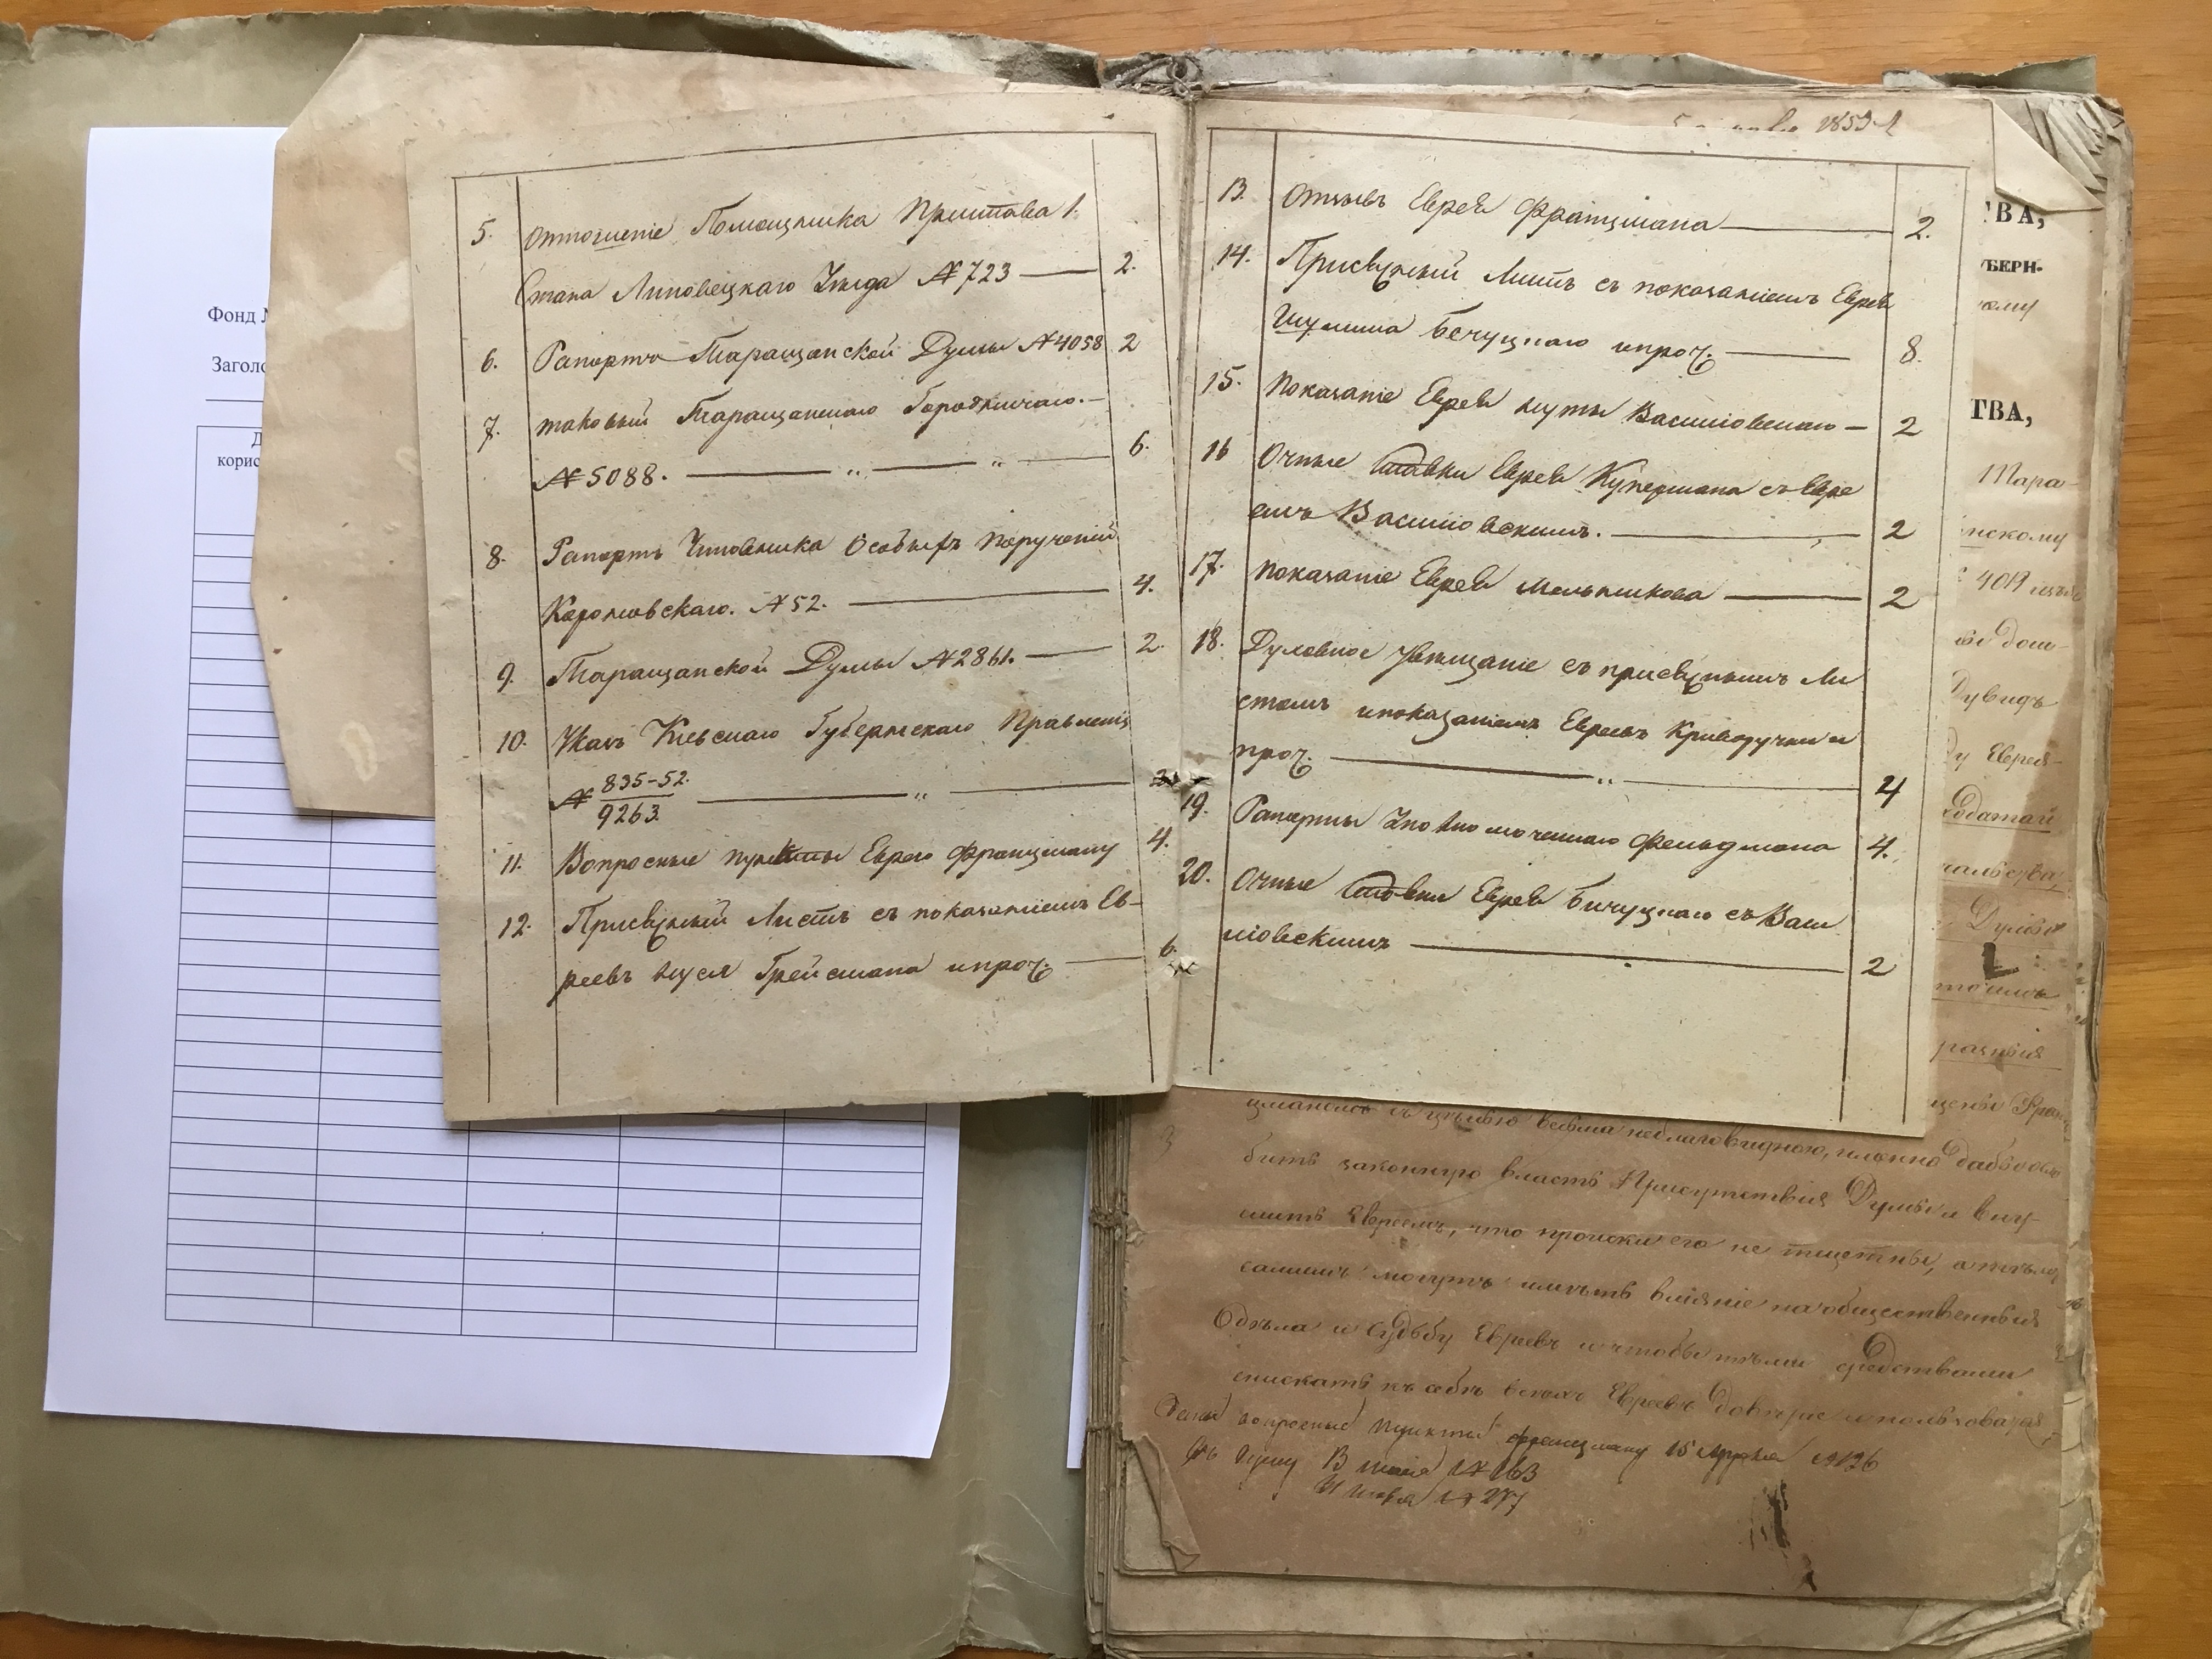 Фонд
Заголо
Д
корис
5. Отношеніе Помощника Пристава 1.
Стана Липовецкаго Уѣзда № 723 — 2.
6. Рапортъ Таращанской Думы № 4058 2
7. таковый Таращанскаго Городничаго. —
№ 5088. — „ — „ — 6.
8. Рапортъ Чиновника Особыхъ Порученій
№ 52. — 4.
9. Таращанской Думы № 2861. — 2.
10. Указъ Кіевскаго Губернскаго Правленія
№ 835-52.
9263. — „ —
11. Вопросные пункты Еврею Францману 4.
12. Присяжный Листъ съ показаніемъ Ев-
реевъ Грейсмана ипроч. — 6.
1853 г
13. Отзывъ Еврея Францмана — 2.
14. Присяжный Листъ съ показаніемъ Еврея
Шулима Бечуцкаго ипроч. — 8.
15. Показаніе Еврея Василіовскаго — 2
16 Очные ставки Еврея Купермана съ Евре
емъ Василіовскимъ. — 2
17. Показаніе Еврея Мельникова — 2
18. Духовное увѣщаніе съ присяжнымъ Ли
стомъ ипоказаніемъ Евреевъ Криворучки и
проч. — „ — 4
19. Рапорты Уполномоченнаго Фельдмана 4.
20. Очные ставки Еврея Бичуцкаго съ Васи
ліовскимъ — 2
ТВА,
УБЕРН-
ому
ТВА,
Тара-
нскому
4019
Дувидъ
ду Еврея-
Думою
цманомъ съ цѣлію весьма неблаговидною, именно дабы осла
бить законную власть Присутствія Думы и вну-
шить Евреямъ, что происки его не тщетны, а тѣмъ
самимъ могутъ имѣть вліяніе на общественныя
дѣла и судьбу Евреевъ и чтобы тѣми средствами
снискать къ себѣ всѣхъ Евреевъ довѣріе и пользоваться
Даны вопросные пункты Францману 15 Апрѣля № 126
Въ Думу 13 № 163
№ 277